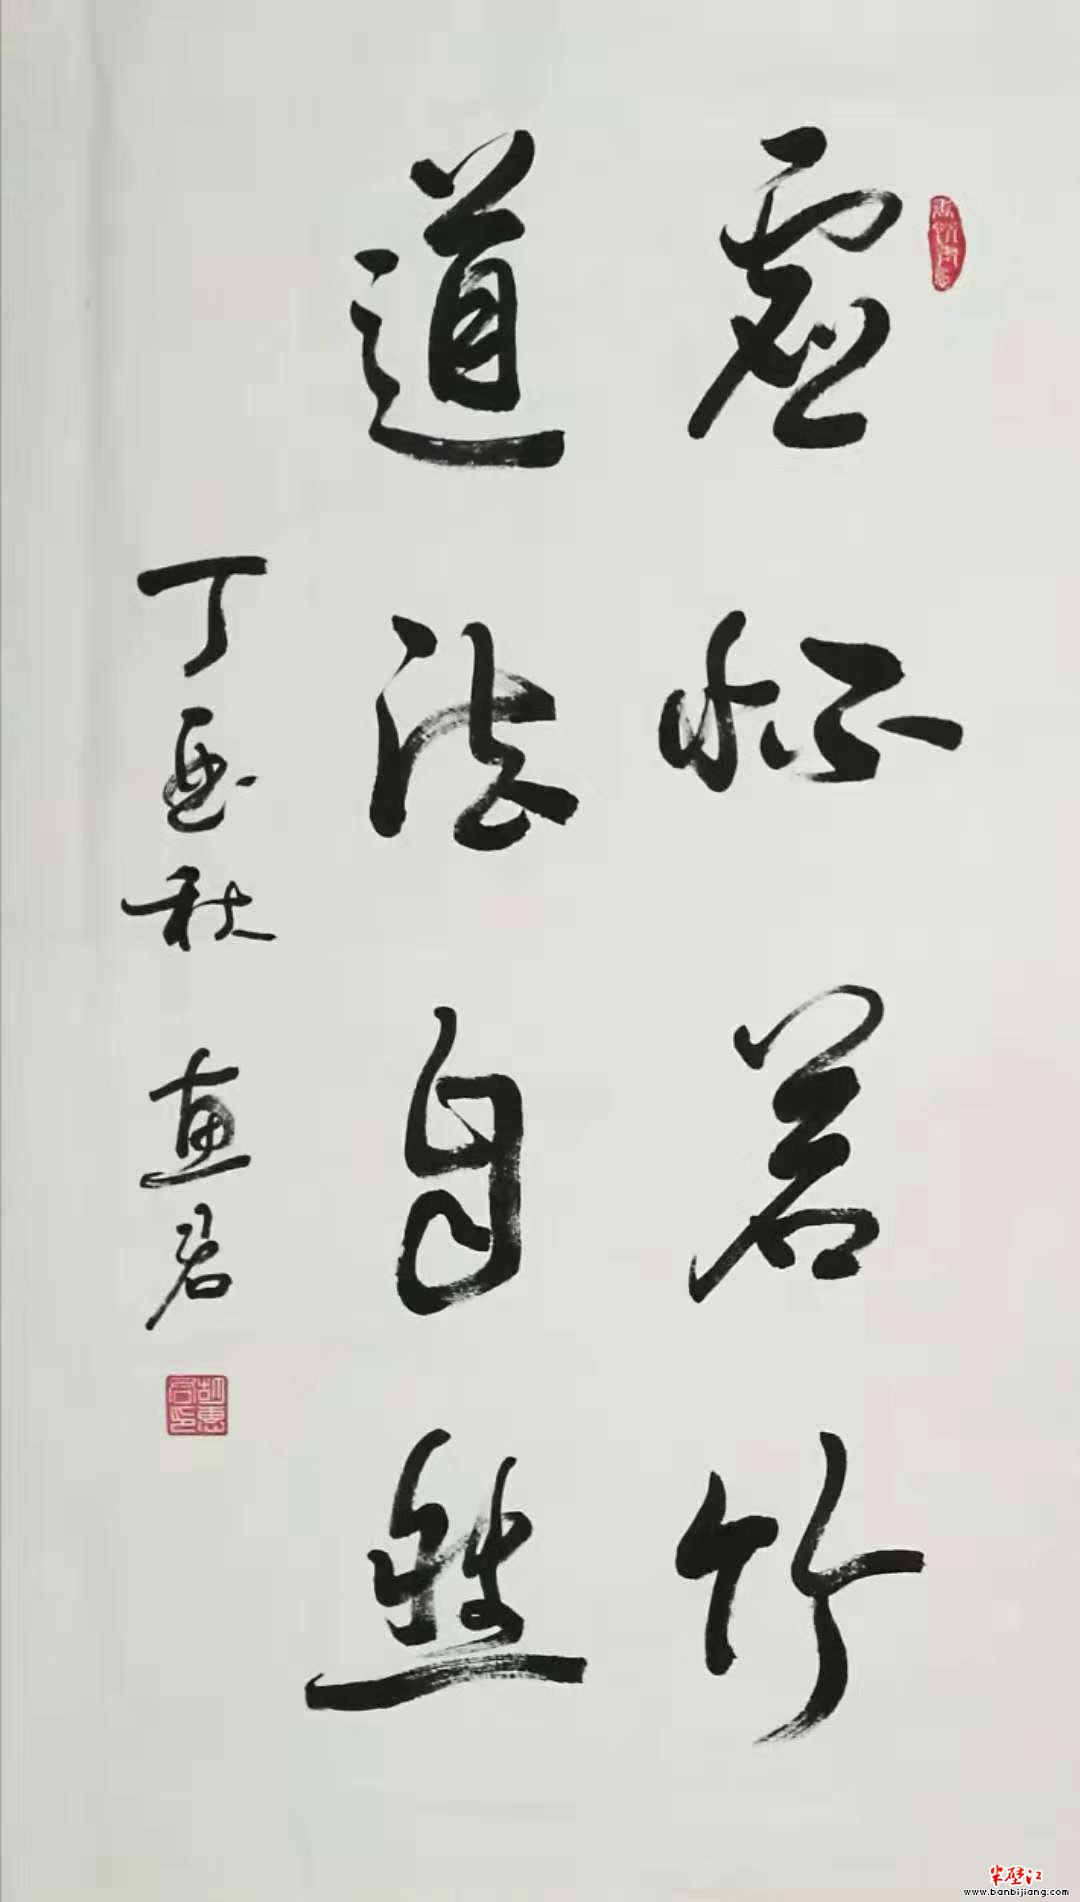 虚怀若竹
道法自然
丁酉秋 惠君
胡惠君印
半壁江
www.banbijiang.com